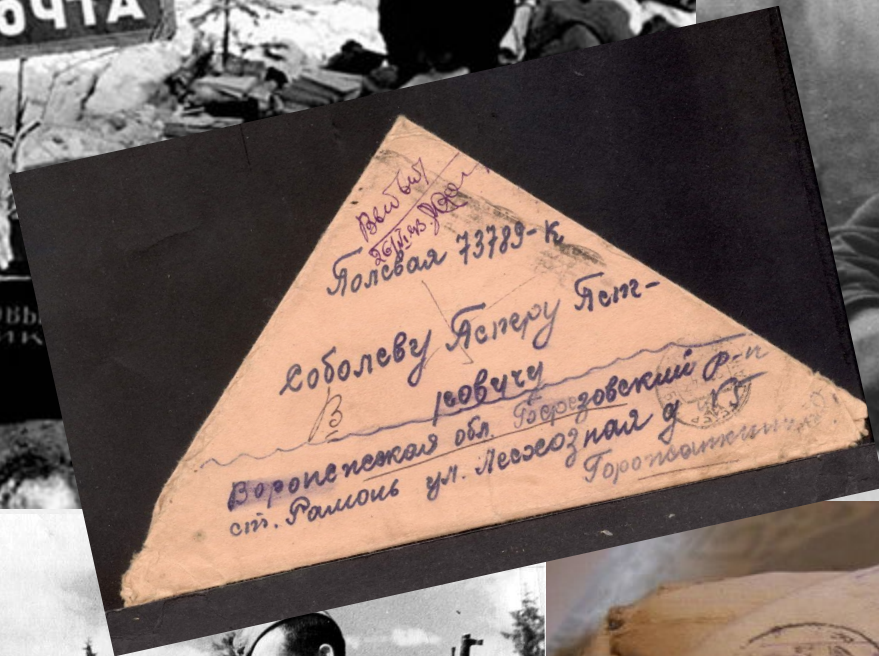 ОЧТА
Выбыл
26/VI.43.
Полевая 73789-К
Соболеву Петеру Пет-
ровичу
В
Воронежская обл. Березовский р-н
ст. Рамонь ул. Лесхозная д 15